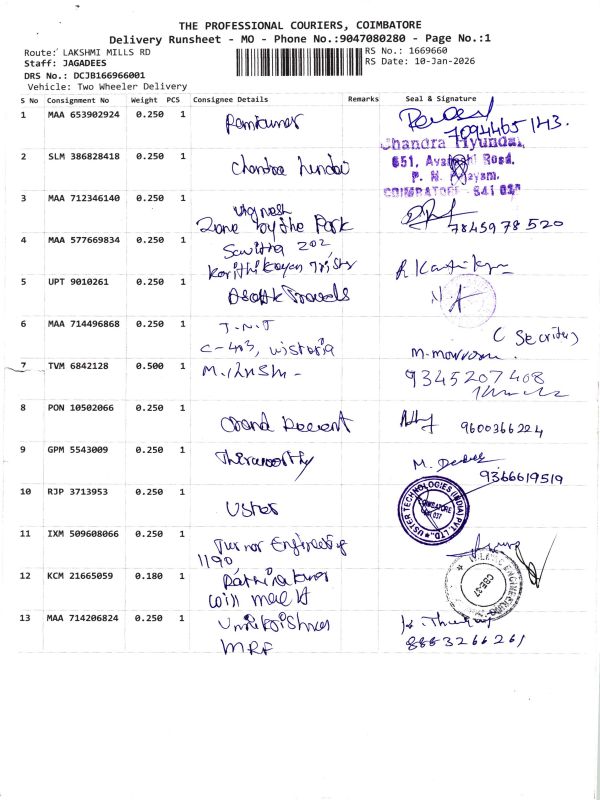 THE PROFESSIONAL COURIERS, COIMBATORE
Delivery Runsheet - MO - Phone No.:9047080280 - Page No.:1
Route: LAKSHMI MILLS RD
RS No.: 1669660
Staff: JAGADEES
RS Date: 10-Jan-2026
DRS No.: DCJB166966001
Vehicle: Two Wheeler Delivery
S No Consignment No Weight PCS Consignee Details Remarks Seal & Signature
1 MAA 653902924 0.250 1 Ramkumar
7094465143.
2 SLM 386828418 0.250 1 Chandra hundai
Chandra Hyundai,
651, Avanashi Road,
P. N. Palayam,
COIMBATORE - 641 037
3 MAA 712346140 0.250 1 Vignesh
Zone by the Park
7845978520
4 MAA 577669834 0.250 1 Savitha 202
Karthikeyan
R Karthikeyan
5 UPT 9010261 0.250 1 Asok Travels
6 MAA 714496868 0.250 1 J.N.T
C-403, Wistoria
C Security
7 TVM 6842128 0.500 1
M.
9345207408
8 PON 10502066 0.250 1 Grand Regent
9600366224
9 GPM 5543009 0.250 1 Thiramoorthy
M.
9366619519
10 RJP 3713953 0.250 1 Uster
USTER TECHNOLOGIES (INDIA) PVT. LTD.
COIMBATORE
641 037
11 IXM 509608066 0.250 1 Turnor Engineering
1190
12 KCM 21665059 0.180 1 Rathinakumar
will meet
ENGINEERING
CBE-37
13 MAA 714206824 0.250 1 Unnikrishnan
MRF
8883266261